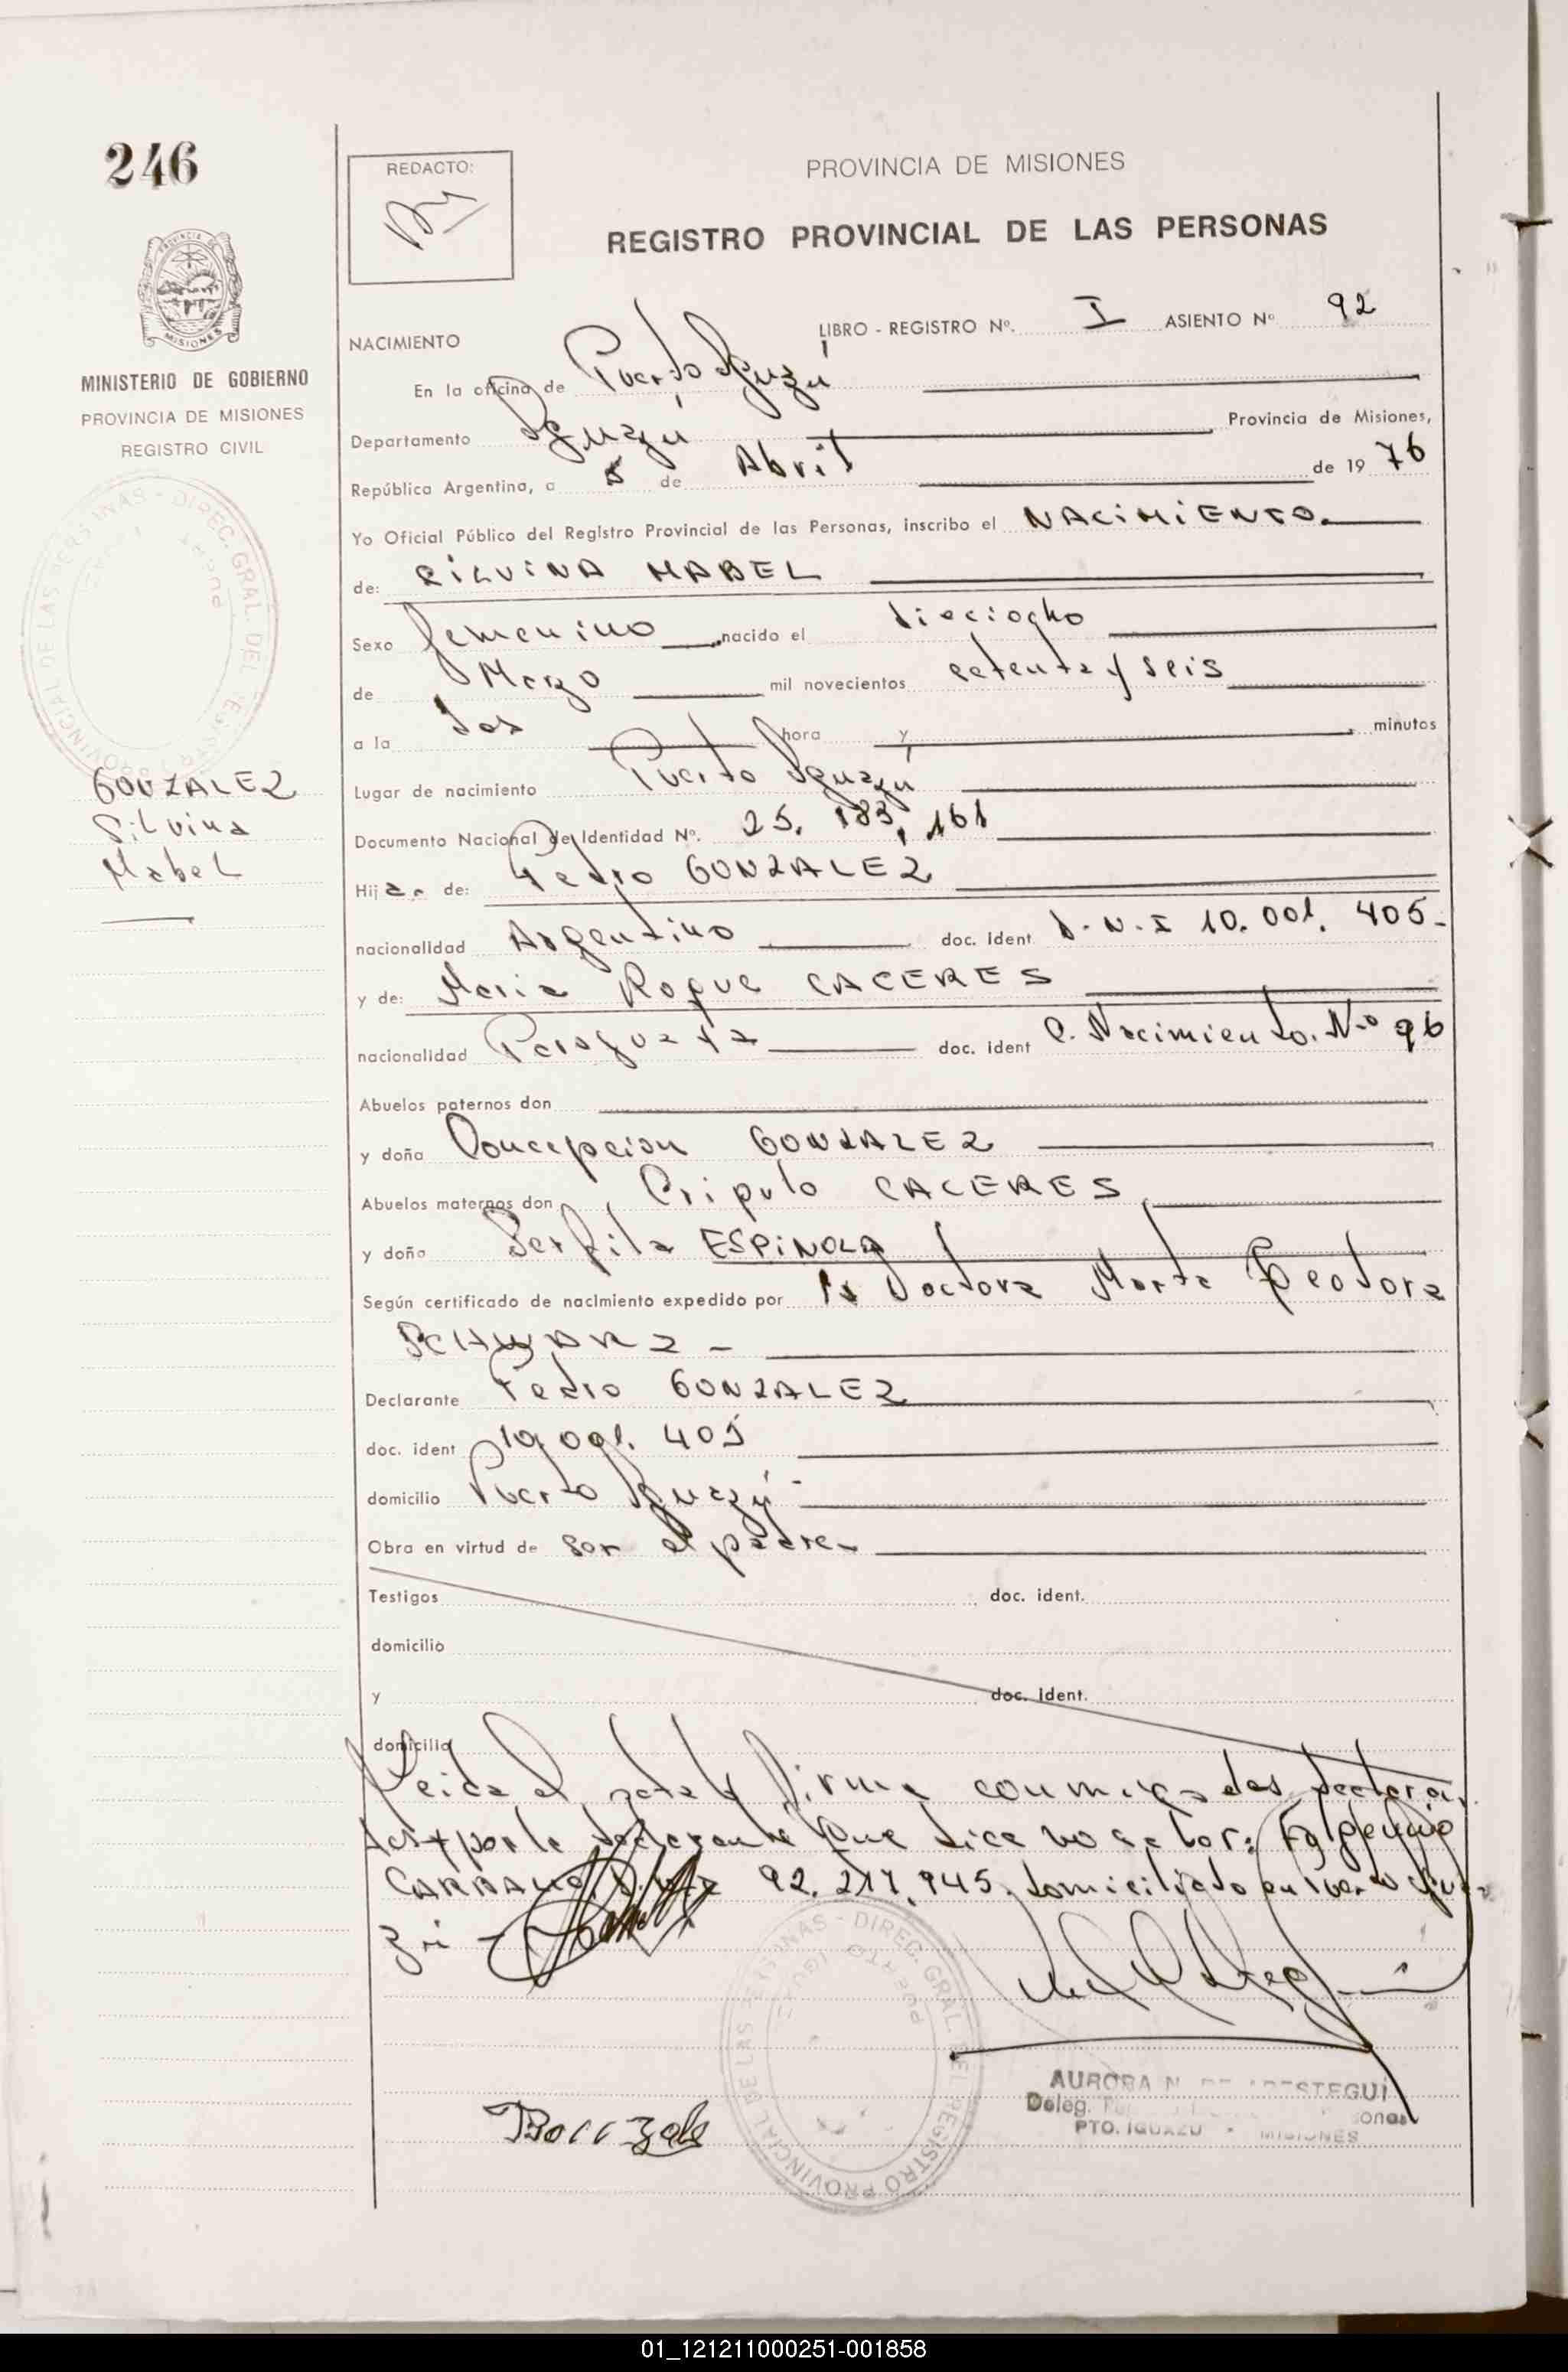 246
REDACTO:
PROVINCIA DE MISIONES
REGISTRO PROVINCIAL DE LAS PERSONAS
MINISTERIO DE GOBIERNO
PROVINCIA DE MISIONES
REGISTRO CIVIL
GONZALEZ
Silvina
Mabel
NACIMIENTO
LIBRO - REGISTRO Nº. I ASIENTO Nº 92
En la oficina de Puerto Iguazú
Departamento Iguazú Provincia de Misiones,
República Argentina, a 5 de Abril de 1976
Yo Oficial Público del Registro Provincial de las Personas, inscribo el NACIMIENTO.
de: SILVINA MABEL
Sexo femenino nacido el dieciocho
de Marzo mil novecientos setenta y seis
a la dos hora y minutos
Lugar de nacimiento Puerto Iguazú
Documento Nacional de Identidad Nº. 25.183.161
Hija. de: Pedro GONZALEZ
nacionalidad Argentino doc. ident D.N.I 10.001.405-
y de: Maria Roque CACERES
nacionalidad Paraguaya doc. ident C. Nacimiento. Nº 96
Abuelos paternos don
y doña Concepcion GONZALEZ
Abuelos maternos don Cripulo CACERES
y doña Serfila ESPINOLA
Según certificado de nacimiento expedido por la Doctora Marta Teodora
SCHWARZ -
Declarante Pedro GONZALEZ
doc. ident 10.001.405
domicilio Puerto Iguazú -
Obra en virtud de ser el padre-
Testigos doc. ident.
domicilio
y doc. ident.
domicilio
Leida el acta firma conmigo
por le declarante que dice no
CARDANO 92.217.945. domiciliado en Puerto Igua-
zú -
AURORA N. DE ARESTEGUI
Deleg.
PTO. IGUAZU - MISIONES
DIREC. GRAL. DEL REGISTRO PROVINCIAL DE LAS PERSONAS
01_121211000251-001858